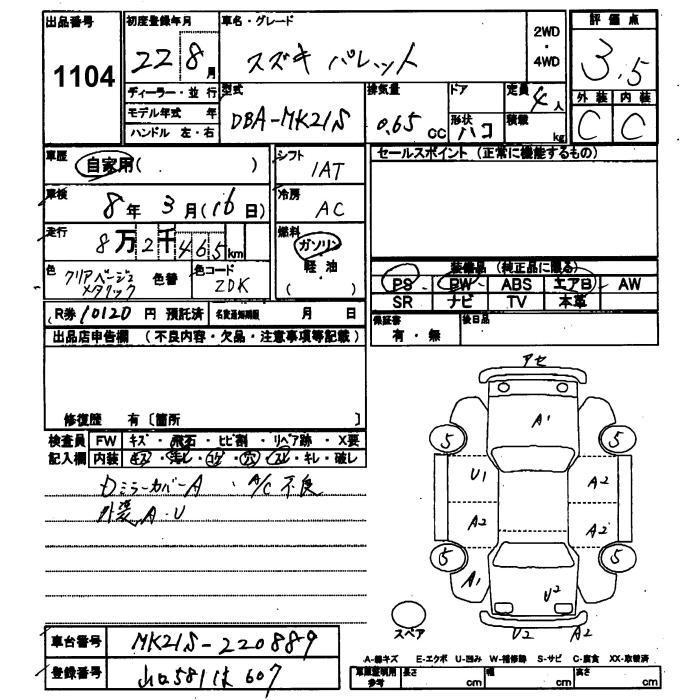 出品番号 1104
初度登録年月 22 8月
車名・グレード スズキ パレット
2WD・4WD
評価点 3.5
外装 C 内装 C
ディーラー・並行
モデル年式 年
ハンドル 左・右
型式 DBA-MK21S
排気量 0.65 cc
ドア
形状 ハコ
定員 4人
積載 kg
車歴 自家用( )
シフト IAT
セールスポイント (正常に機能するもの)
車検 8年 3月(16日)
冷房 AC
走行 8万2千465km
燃料 ガソリン 軽・油 ( )
色 クリアベージュメタリック 色替
色コード ZDK
装備品 (純正品に限る)
PS PW ABS エアB AW
SR ナビ TV 本革
R券 10120 円 預託済 名変通知期限 月 日
保証書 有・無
後日品
出品店申告欄 (不良内容・欠品・注意事項等記載)
修復歴 有〔箇所 〕
検査員 FW キズ・飛石・ヒビ割・リペア跡・X要
記入欄 内装 キズ・汚レ・コゲ・穴・スレ・キレ・破レ
ミラーカバーA ・A/C不良
外装 A・U
アセ
A1
5 5
U1 A2
A2 A2
5 5
A1 U2
U2 A2
スペア
車台番号 MK21S-220889
登録番号 山口581 607
A-線キズ E-エクボ U-凹み W-補修跡 S-サビ C-腐食 XX-取替済
車両整理用参考 長さ cm 幅 cm 高さ cm